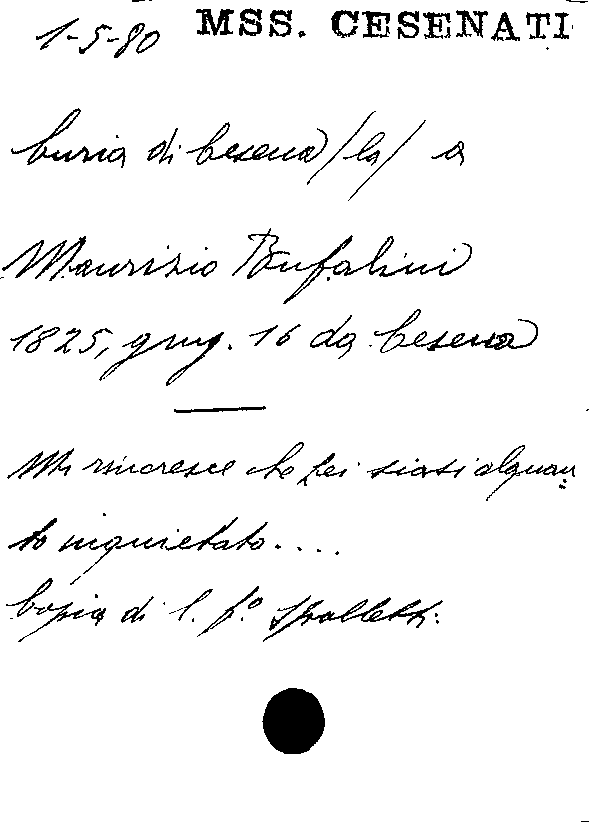 1-5-80 MSS. CESENATI
Curia di Cesena /la/ a
Maurizio Bufalini
1825, giug. 16 da Cesena
Mi rincresce che Lei siasi alquan
to inquietato....
Copia di l. f.º Spalletti.